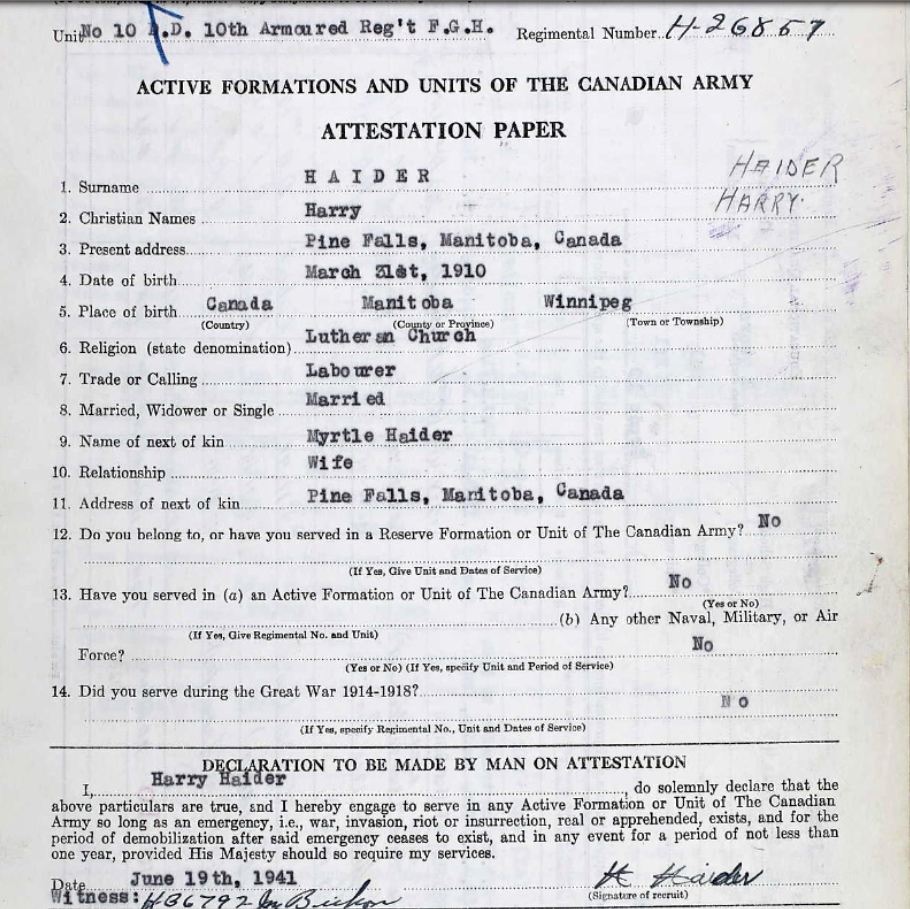 Unit No 10 A.D. 10th Armoured Reg't F.G.H. Regimental Number H-26857
ACTIVE FORMATIONS AND UNITS OF THE CANADIAN ARMY
ATTESTATION PAPER
HAIDER
HARRY.
1. Surname H A I D E R
2. Christian Names Harry
3. Present address Pine Falls, Manitoba, Canada
4. Date of birth March 31st, 1910
5. Place of birth Canada Manitoba Winnipeg
(Country) (County or Province) (Town or Township)
6. Religion (state denomination) Lutheran Church
7. Trade or Calling Labourer
8. Married, Widower or Single Married
9. Name of next of kin Myrtle Haider
10. Relationship Wife
11. Address of next of kin Pine Falls, Manitoba, Canada
12. Do you belong to, or have you served in a Reserve Formation or Unit of The Canadian Army? No
(If Yes, Give Unit and Dates of Service)
13. Have you served in (a) an Active Formation or Unit of The Canadian Army? No
(Yes or No)
(b) Any other Naval, Military, or Air
(If Yes, Give Regimental No. and Unit)
Force? No
(Yes or No) (If Yes, specify Unit and Period of Service)
14. Did you serve during the Great War 1914-1918? No
(If Yes, specify Regimental No., Unit and Dates of Service)
DECLARATION TO BE MADE BY MAN ON ATTESTATION
I, Harry Haider, do solemnly declare that the
above particulars are true, and I hereby engage to serve in any Active Formation or Unit of The Canadian
Army so long as an emergency, i.e., war, invasion, riot or insurrection, real or apprehended, exists, and for the
period of demobilization after said emergency ceases to exist, and in any event for a period of not less than
one year, provided His Majesty should so require my services.
Date June 19th, 1941 H Haider
Witness: H36792 (Signature of recruit)